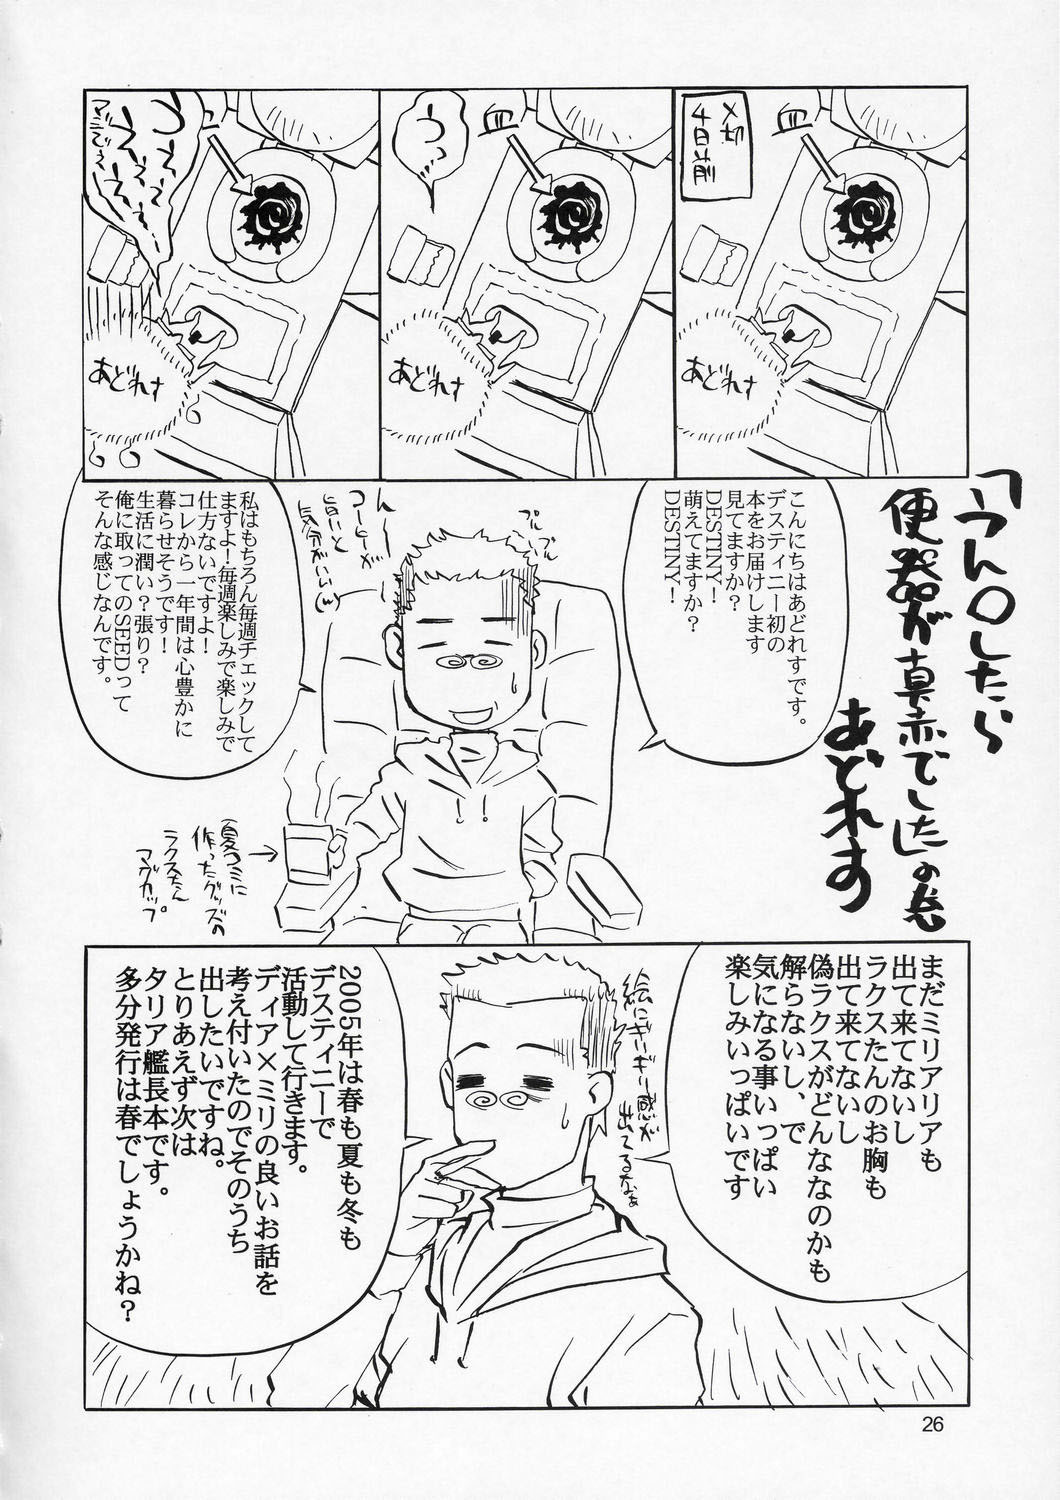 「うん〇したら
便器が真赤でした」の巻
あどれす
〆切
4日前
血
あどれす
血
うっ…
あどれす
血
あどれす
こんにちはあどれすです。
デスティニー初の
本をお届けします
見てますか?
DESTINY!
萌えてますか?
DESTINY!
プルプル
プルプル
コーヒーが
旨いと
気分がいい
私はもちろん毎週チェックして
ますよ!毎週楽しみで楽しみで
仕方ないですよ!
コレから一年間は心豊かに
暮らせそうです!
生活に潤い?張り?
俺に取ってのSEEDって
そんな感じなんです。
夏コミに
作ったグッズの
ラクスたん
マグカップ。
まだミリアリアも
出て来てないし
ラクスたんのお胸も
出て来てないし
偽ラクスがどんななのかも
解らないし、で
気になる事いっぱい
楽しみいっぱいです
絵にギーギー感が
出てるなぁ
2005年は春も夏も冬も
デスティニーで
活動して行きます。
ディア×ミリの良いお話を
考え付いたのでそのうち
出したいですね。
とりあえず次は
タリア艦長本です。
多分発行は春でしょうかね?
26